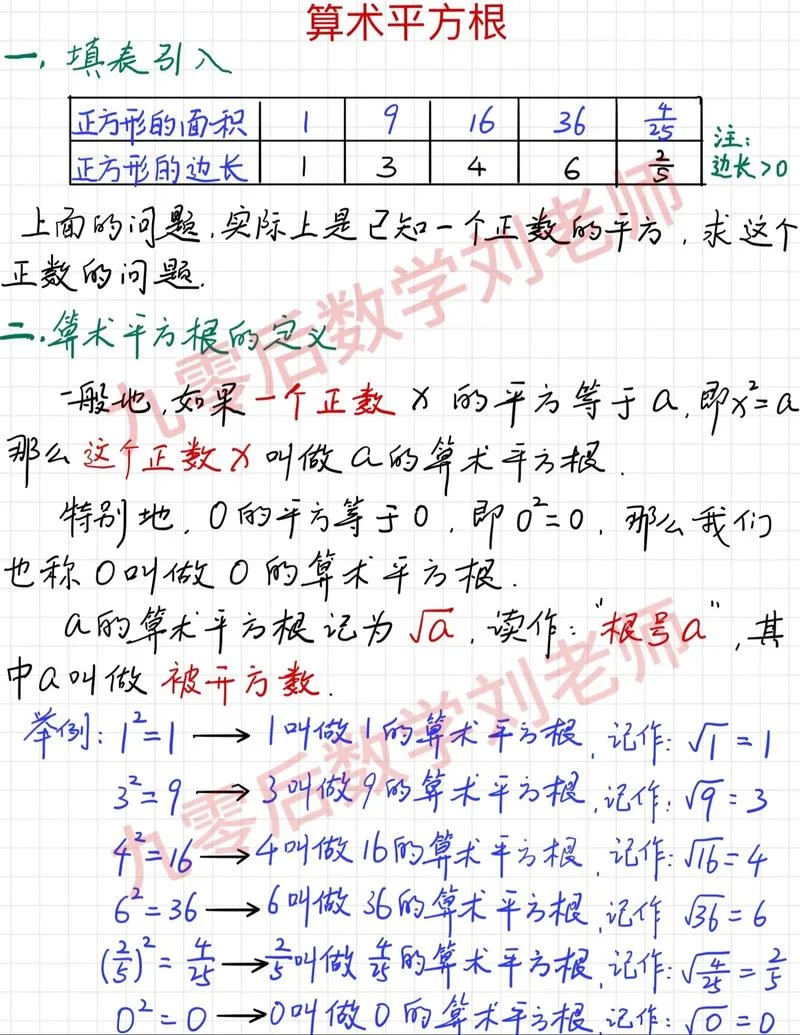 算术平方根
一.填表引入
正方形的面积 1 9 16 36 4/25
正方形的边长 1 3 4 6 2/5
注:
边长>0
上面的问题,实际上是已知一个正数的平方,求这个
正数的问题.
二.算术平方根的定义
一般地,如果一个正数x的平方等于a,即x²=a
那么这个正数x叫做a的算术平方根.
特别地,0的平方等于0,即0²=0,那么我们
也称0叫做0的算术平方根.
a的算术平方根记为√a,读作:"根号a",其
中a叫做被开方数.
举例:1²=1→1叫做1的算术平方根,记作:√1=1
3²=9→3叫做9的算术平方根,记作:√9=3
4²=16→4叫做16的算术平方根,记作:√16=4
6²=36→6叫做36的算术平方根,记作√36=6
(2/5)²=4/25→2/5叫做4/25的算术平方根,记作:√4/25=2/5
0²=0→0叫做0的算术平方根,记作:√0=0
九零后数学刘老师
九零后数学刘老师